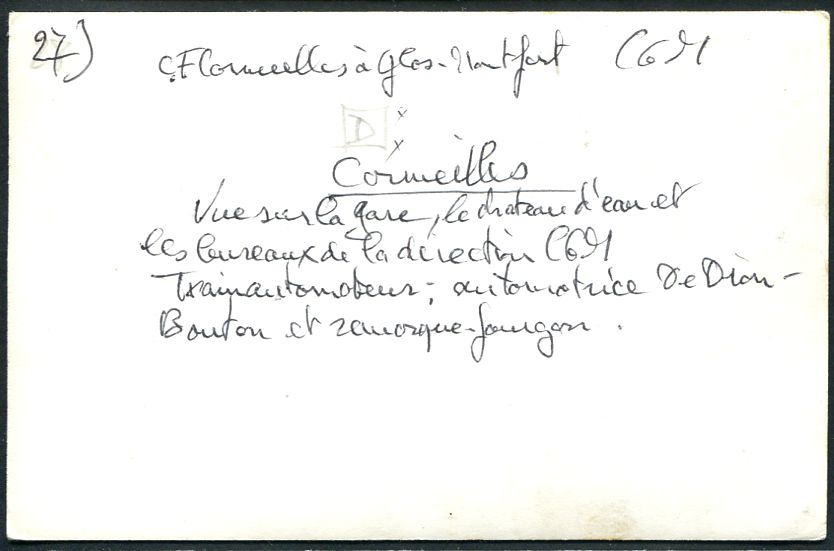 27)
CF Cormeilles à Glos-Montfort CGM
D x
x
Cormeilles
Vue sur la gare, le chateau d'eau et
les bureaux de la direction CGM
Train automoteur; automotrice De Dion-
Bouton et remorque-fourgon.